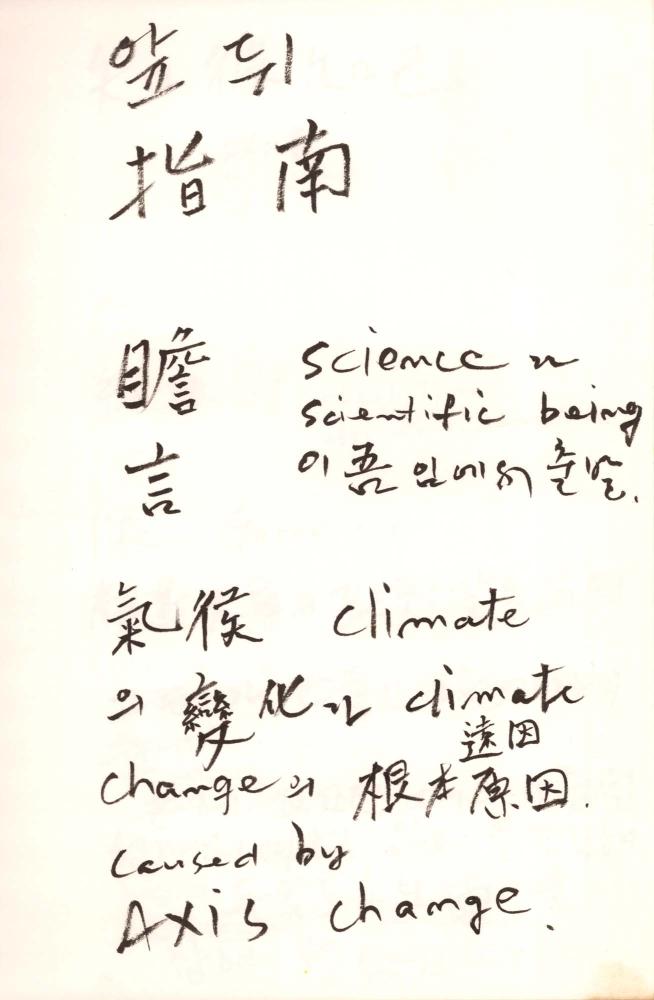 앞 뒤
指 南
瞻
言
science 가
scientific being
이 吾임에서 출발.
氣候 climate
의 變化가 climate
遠因
change의 根本原因.
caused by
AXis change.